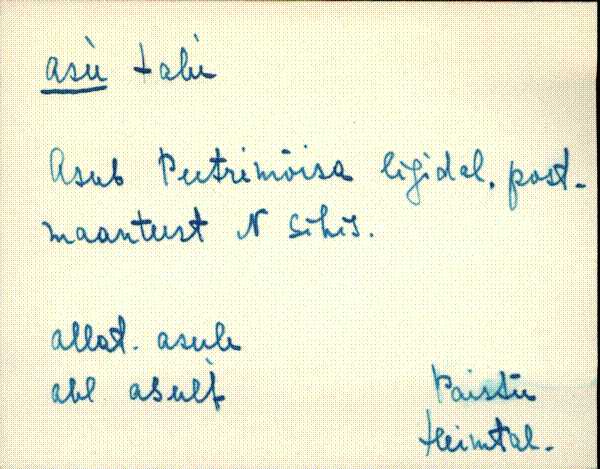 asu talu
Asub Peetrimõisa ligidal, post-
maanteest N sihis.
allat. asule
abl asult
Paistu
Heimtal.